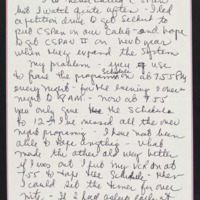 I've never called C Span
but I watch quite often - I led
a petition drive to get Select to
put CSPan on our cable - and hope
to get CSPAN II on next year
when they expand the system
my problem - I use
to tape the program schedule on at 7:55 PM
every night - for the evening & over
night to 8 AM - now at 7:55
you only give the schedule
to 12 - I've missed all the over
night programing - I have not been
able to tape anything - what
made the other old way better
if I was out I put my VCR on at
7:55 to tape the schedule - then
I could set the timer for over
nite - if I had asleep early at